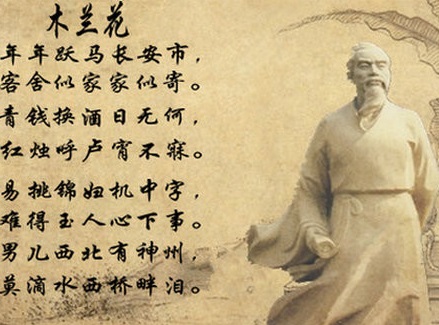 木兰花
年年跃马长安市，
客舍似家家似寄。
青钱换酒日无何，
红烛呼卢宵不寐。
易挑锦妇机中字，
难得玉人心下事。
男儿西北有神州，
莫滴水西桥畔泪。